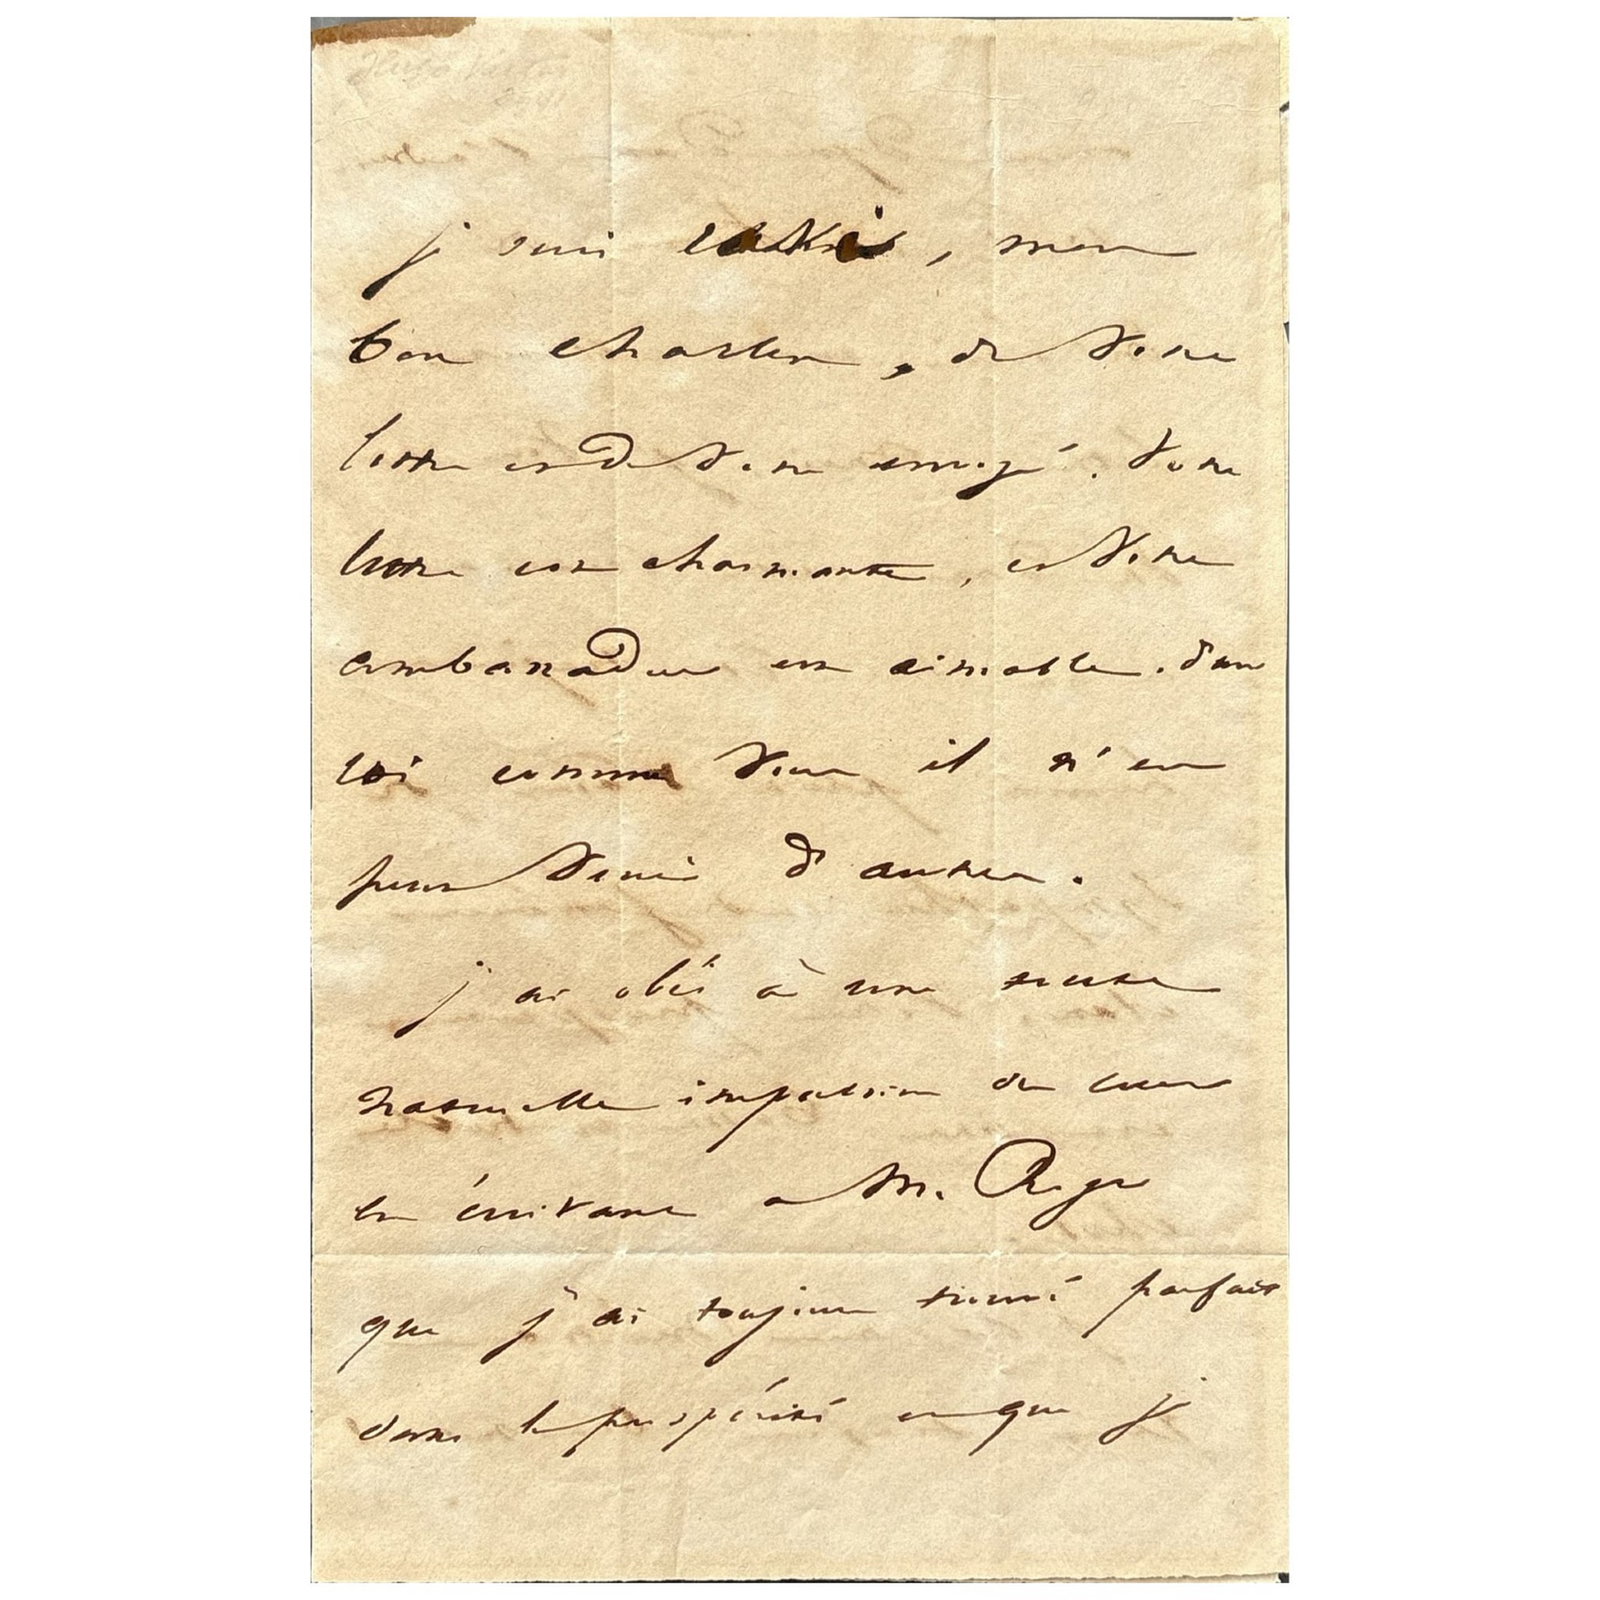 Hugo Victor
je suis ravi, mon
bon Charles, de votre
lettre et de votre envoyé. Votre
lettre est charmante, et votre
ambassadeur est aimable. d'un
roi comme vous il n'en
peut venir d'autres.
j'ai obéi à une toute
naturelle impulsion de cœur
en écrivant à M.
que j'ai toujours trouvé parfait
dans la prospérité et que je